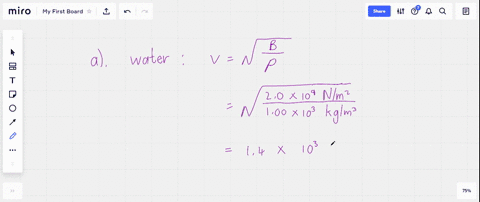 miro My First Board Share
a). water : V = √(B/ρ)
= √(2.0 × 10⁹ N/m² / 1.00 × 10³ kg/m³)
= 1.4 × 10³
75%